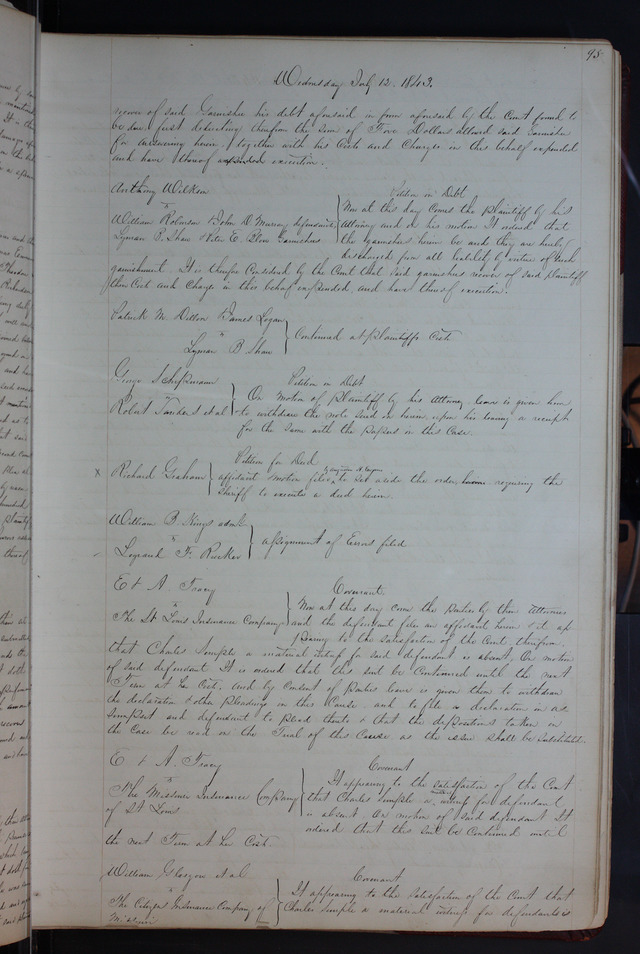 95
Wednesday July 12. 1843.
recover of said Garnishee his debt aforesaid in form aforesaid by the Court found to
be due just deducting therefrom the sum of Five Dollars allowed said Garnishee
for answering herein, together with his Costs and Charges in this behalf expended
and have thereof execution.
Anthony Wilkson
vs
Petition in Debt
William Robinson & John D. Murray defendants
Lyman B. Shaw & Peter E. Blow Garnishees
Now at this day comes the plaintiff by his
Attorney and on his motion It is ordered that
the Garnishees herein be and they are hereby
discharged from all liability by virtue of such
garnishment. It is therefore Considered by the Court that said garnishees recover of said plaintiff
their Cost and Charges in this behalf expended, and have thereof execution.
Patrick M. Dillon & James Logan
vs
Lyman B Shaw
Continued at plaintiffs Cost
George
vs
Petition in Debt
Robert et al
On Motion of plaintiff by his Attorney leave is given him
to withdraw the note sued on herein, upon his leaving a receipt
for the same with the papers in this Case.
Petition for Deed
x Richard Graham
affidavit & motion filed to set aside the order, requiring the
Sheriff to execute a deed herein.
William B. Kings admr
vs
F. Rucker
assignment of Errors filed
E & A. Tracy
vs
Covenant
The St Louis Insurance Company
Now at this day come the parties by their Attorneys
and the defendant files an affidavit herein & it ap
pearing to the satisfaction of the Court therefrom
that Charles Semple a material witness for said defendant is absent, On motion
of said defendant It is ordered that this suit be Continued until the next
Term at her Cost. and by Consent of parties leave is given them to withdraw
the declaration & other pleadings in this Cause and to file a declaration in as
sumpsit and defendant to plead thereto & that the depositions taken in
the Case be read on the Trial of this Cause as the issue shall be substituted.
E & A. Tracy
vs
Covenant
The Missouri Insurance Company
of St Louis
It appearing to the satisfaction of the Court
that Charles Semple a witness for defendant
is absent. On motion of said defendant It
ordered that this suit be Continued until
the next Term at her Cost.
William Glasgow et al
vs
Covenant
The Citizens Insurance Company of
Missouri
It appearing to the satisfaction of the Court that
Charles Semple a material witness for defendants is